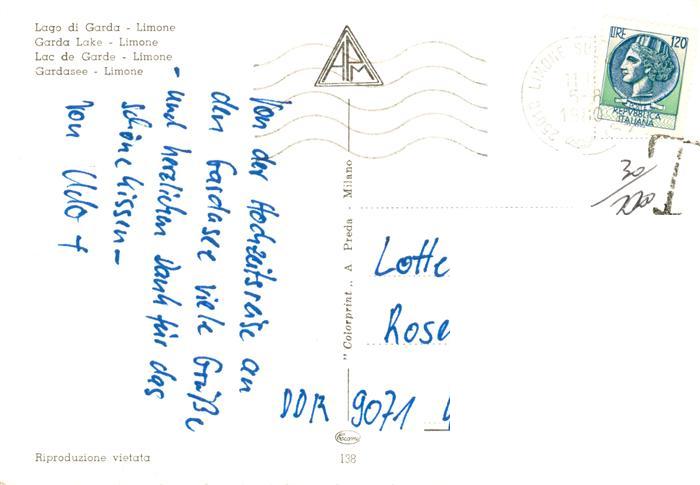 Lago di Garda - Limone
Garda Lake - Limone
Lac de Garde - Limone
Gardasee - Limone
APM
LIRE 120
REPVBBLICA
ITALIANA
LIMONE
30/220
T
Von der Hochzeitsreise an
den Gardasee viele Grüße
- und herzlichen Dank für das
schöne Kissen -
Von Udo +
"Colorprint„ A Preda - Milano
Lotte
Rose
DDR 9071
Riproduzione vietata
138